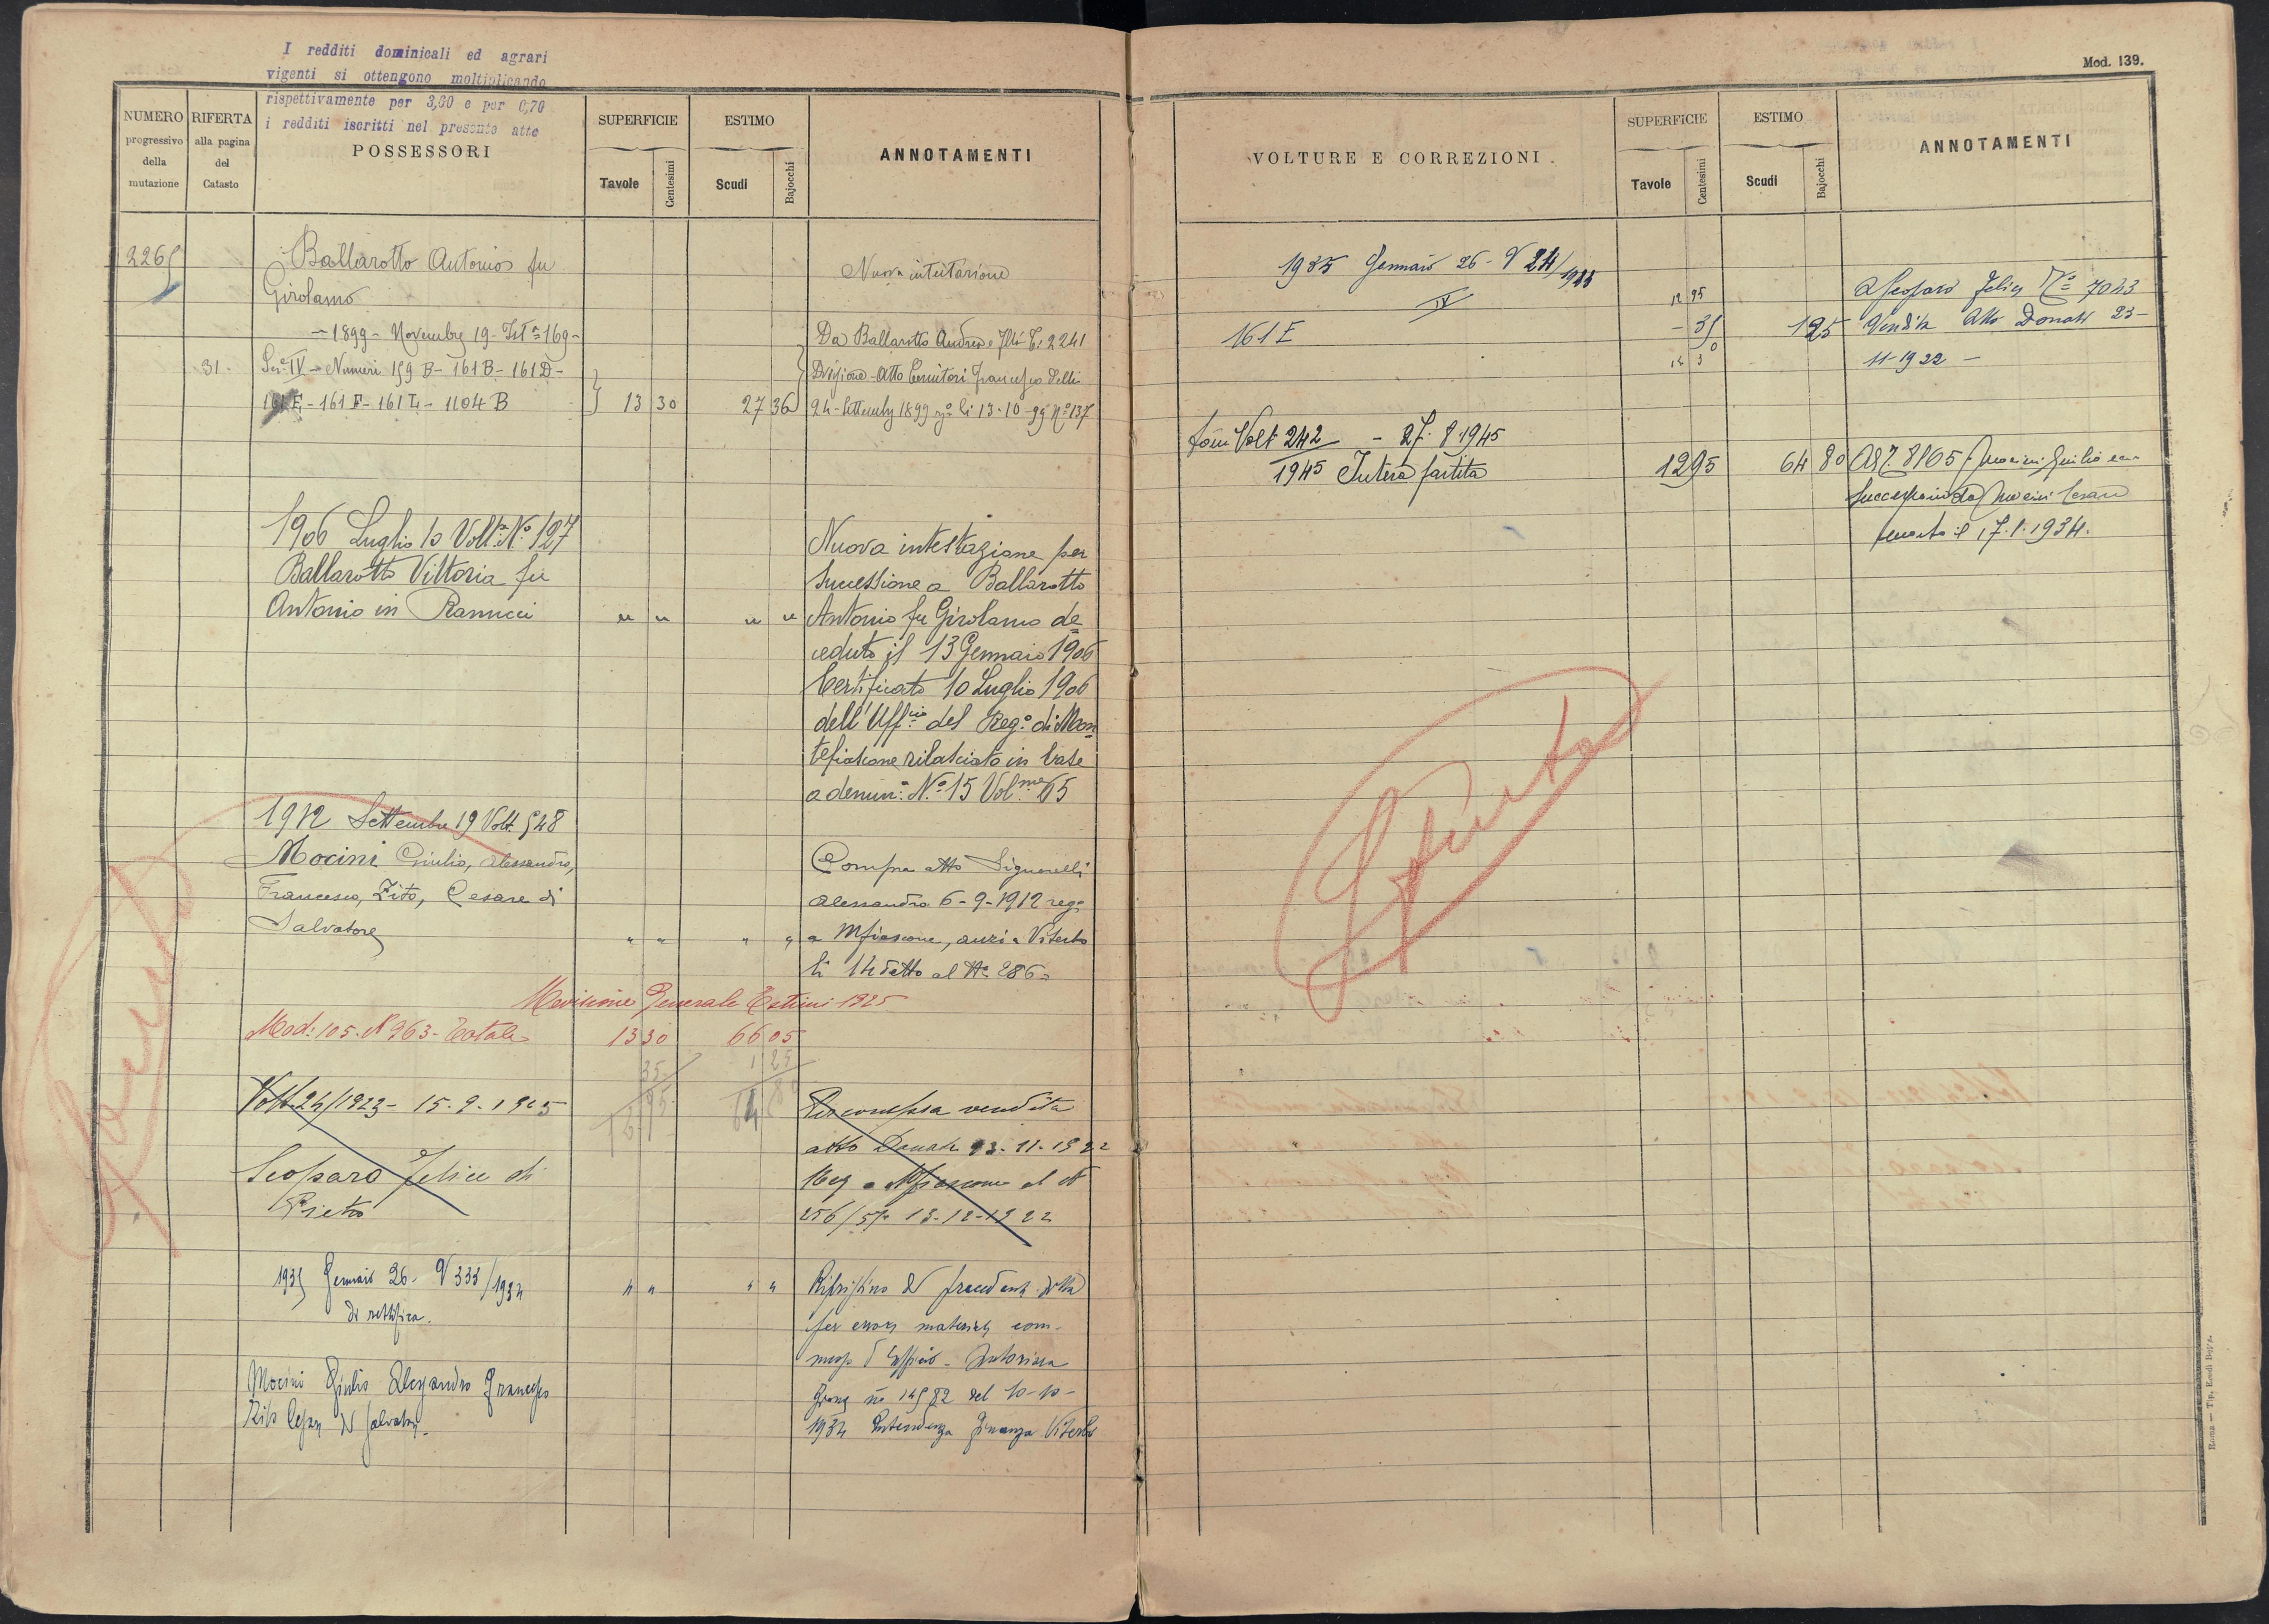 I redditi dominicali ed agrari
vigenti si ottengono moltiplicando
rispettivamente per 3,60 e per 0,70
i redditi iscritti nel presente atto
NUMERO
progressivo
della
mutazione
RIFERTA
alla pagina
del
Catasto
POSSESSORI
SUPERFICIE
Tavole
Centesimi
ESTIMO
Scudi
Bajocchi
ANNOTAMENTI
2265
Ballarotto Antonio fu
Girolamo
Nuova intestazione
- 1899 - Novembre 19 - Ist.ª 169 -
Da Ballarotto Andrea e
2241
31.
Sez.e IV - Numeri 159 B - 161 B - 161 D -
Divisione - Atto Cernitori Francesco
161 E - 161 F - 161 L - 1104 B
13 30
27 36
24 - Settembre 1899 li 13-10-99 Nº 137
1906 Luglio 10 Volt.ª Nº 127
Ballarotto Vittoria fu
Antonio in Ranucci
" "
" "
Nuova intestazione per
Successione a Ballarotto
Antonio fu Girolamo de=
ceduto il 13 Gennaio 1906
Certificato 10 Luglio 1906
dell'Uff.cio del Reg.º di Mon=
tefiascone rilasciato in base
a denun.ª Nº 15 Vol.me 65
1912 Settembre 19 Volt. 548
Mocini Giulio, Alessandro,
Francesco, Zito, Cesare di
Salvatore
" "
" "
Compra atto Signorelli
Alessandro 6-9-1912 reg.
a Mfiascone, anzi a Viterbo
li 14 detto al Nº 286
Revisione Generale Estimi 1925
Mod: 105. N 963 - Totale
13 30
66 05
35
1 25
Volt. 24/1923 - 15.9.1925
Per compra vendita
atto Donati 23-11-1922
Scoparo Felice di
Pietro
Reg a Mfiascone al N
256/57 13-12-1922
1935 Gennaio 26 - V 333/1934
di rettifica.
" "
" "
Ripristino di precedente ditta
per errore materiale com-
messo d'Ufficio - Autorizza
del 10-10-
1934 Intendenza Finanza Viterbo
Mocini Giulio Alessandro Francesco
Zito Cesare di Salvatore
Spento
Mod. 139.
VOLTURE E CORREZIONI.
SUPERFICIE
Tavole
Centesimi
ESTIMO
Scudi
Bajocchi
ANNOTAMENTI
1935 Gennaio 26 - V 24/1923
IV
12 95
A Scoparo Felice Nº 7023
161 E
- 35
1 25
Vendita Atto Donati 23-
11-1922 -
Volt 242 - 27.8.1945
1945 Intera partita
12 95
64 80
8165 Mocini Giulio
successione da Mocini Cesare
morto il 17.1.1934.
Spento